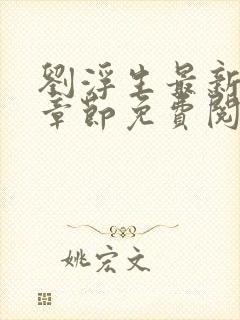 劉浮生最新
章節免費閱
姚宏文